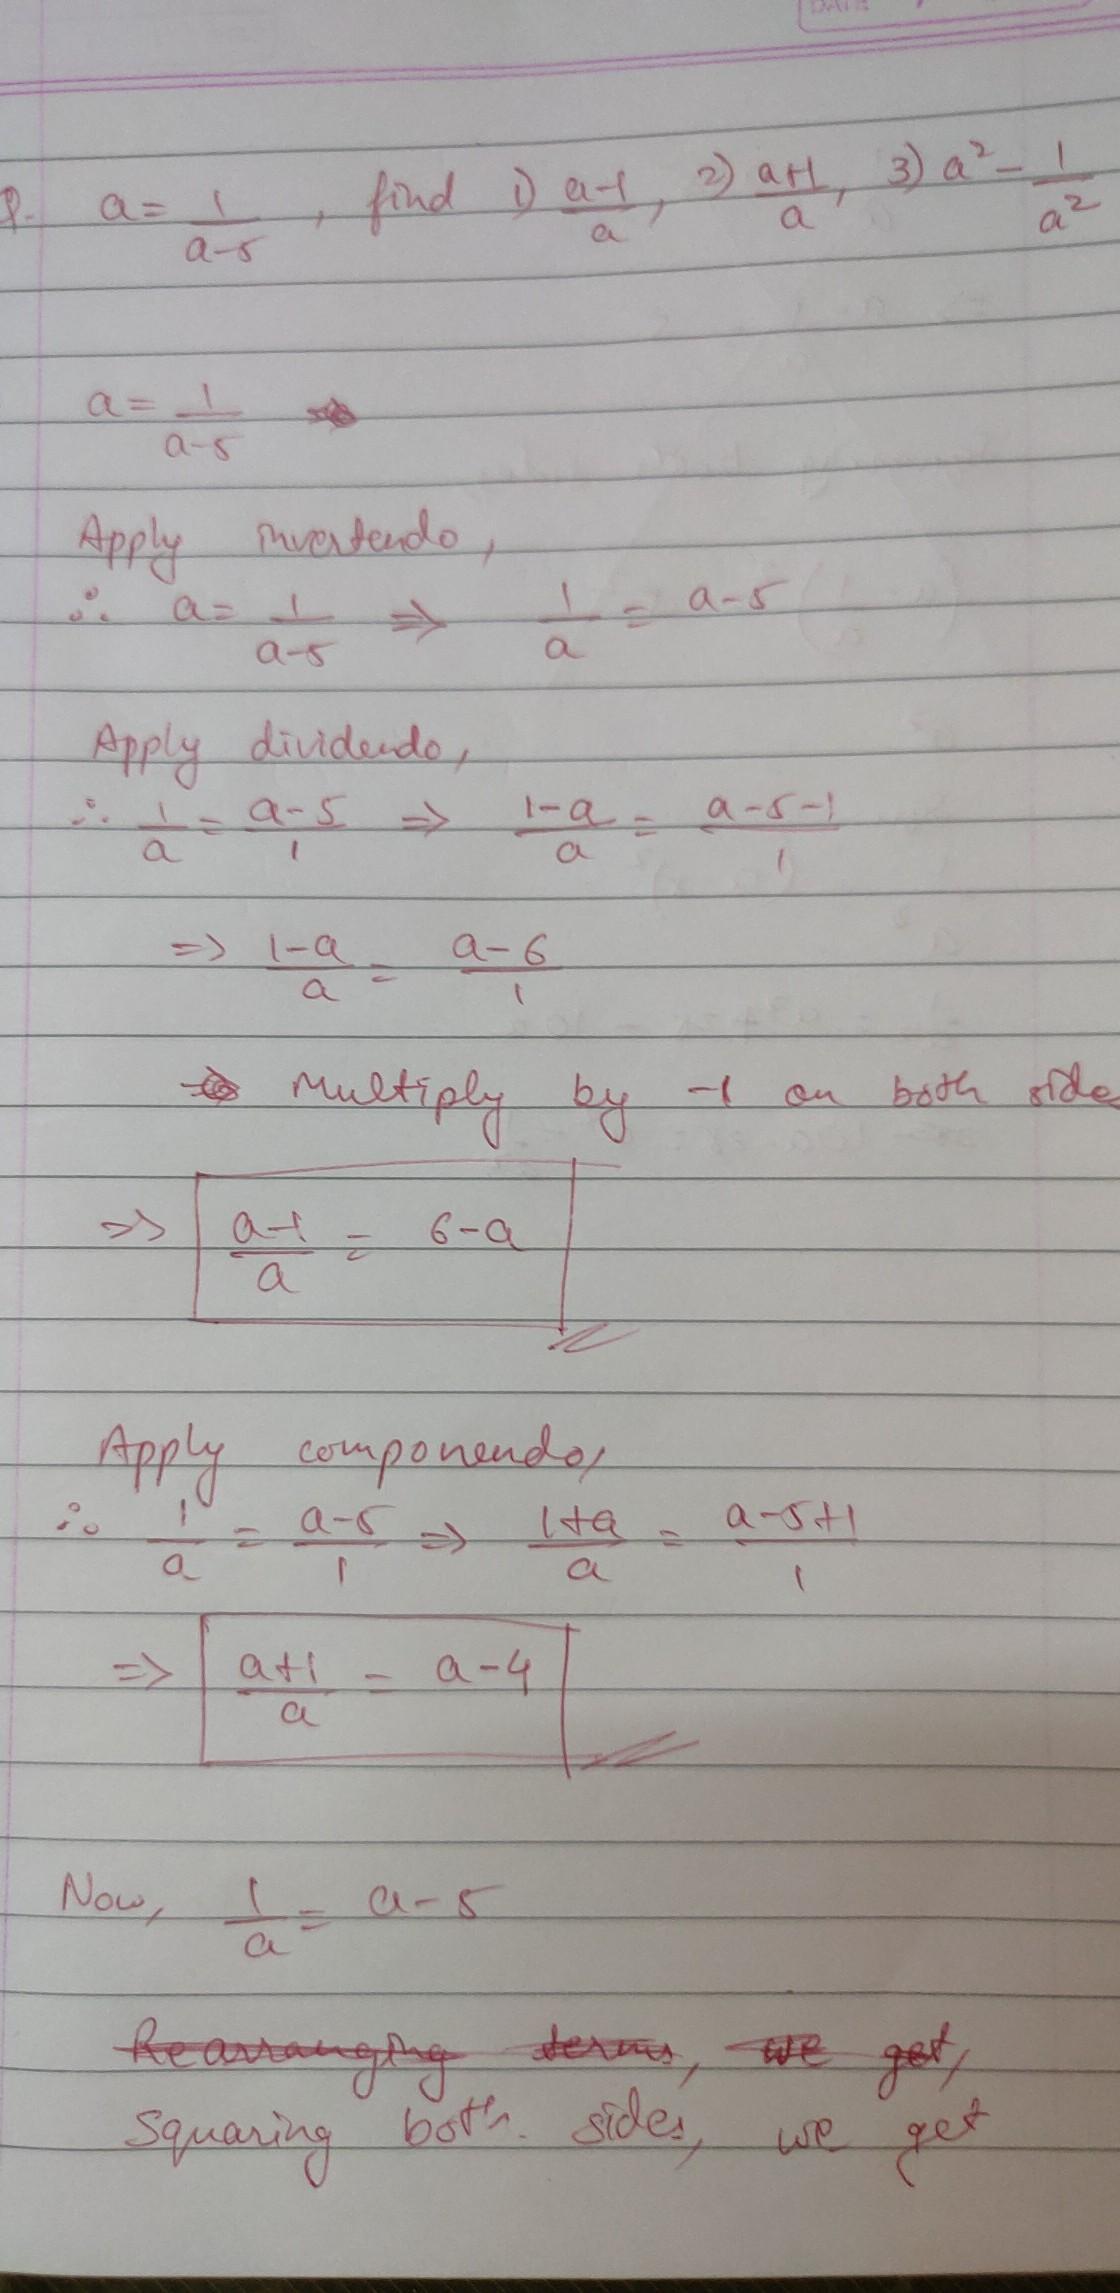 DATE
Q. a = 1/(a-5), find 1) (a-1)/a, 2) (a+1)/a, 3) a² - 1/a²
a = 1/(a-5)
Apply invertendo,
∴ a = 1/(a-5) ⇒ 1/a = a-5
Apply dividendo,
∴ 1/a = (a-5)/1 ⇒ (1-a)/a = (a-5-1)/1
⇒ (1-a)/a = (a-6)/1
Multiply by -1 on both side
⇒ (a-1)/a = 6-a
Apply componendo,
∴ 1/a = (a-5)/1 ⇒ (1+a)/a = (a-5+1)/1
⇒ (a+1)/a = a-4
Now, 1/a = a-5
Rearranging terms, we get,
Squaring both sides, we get